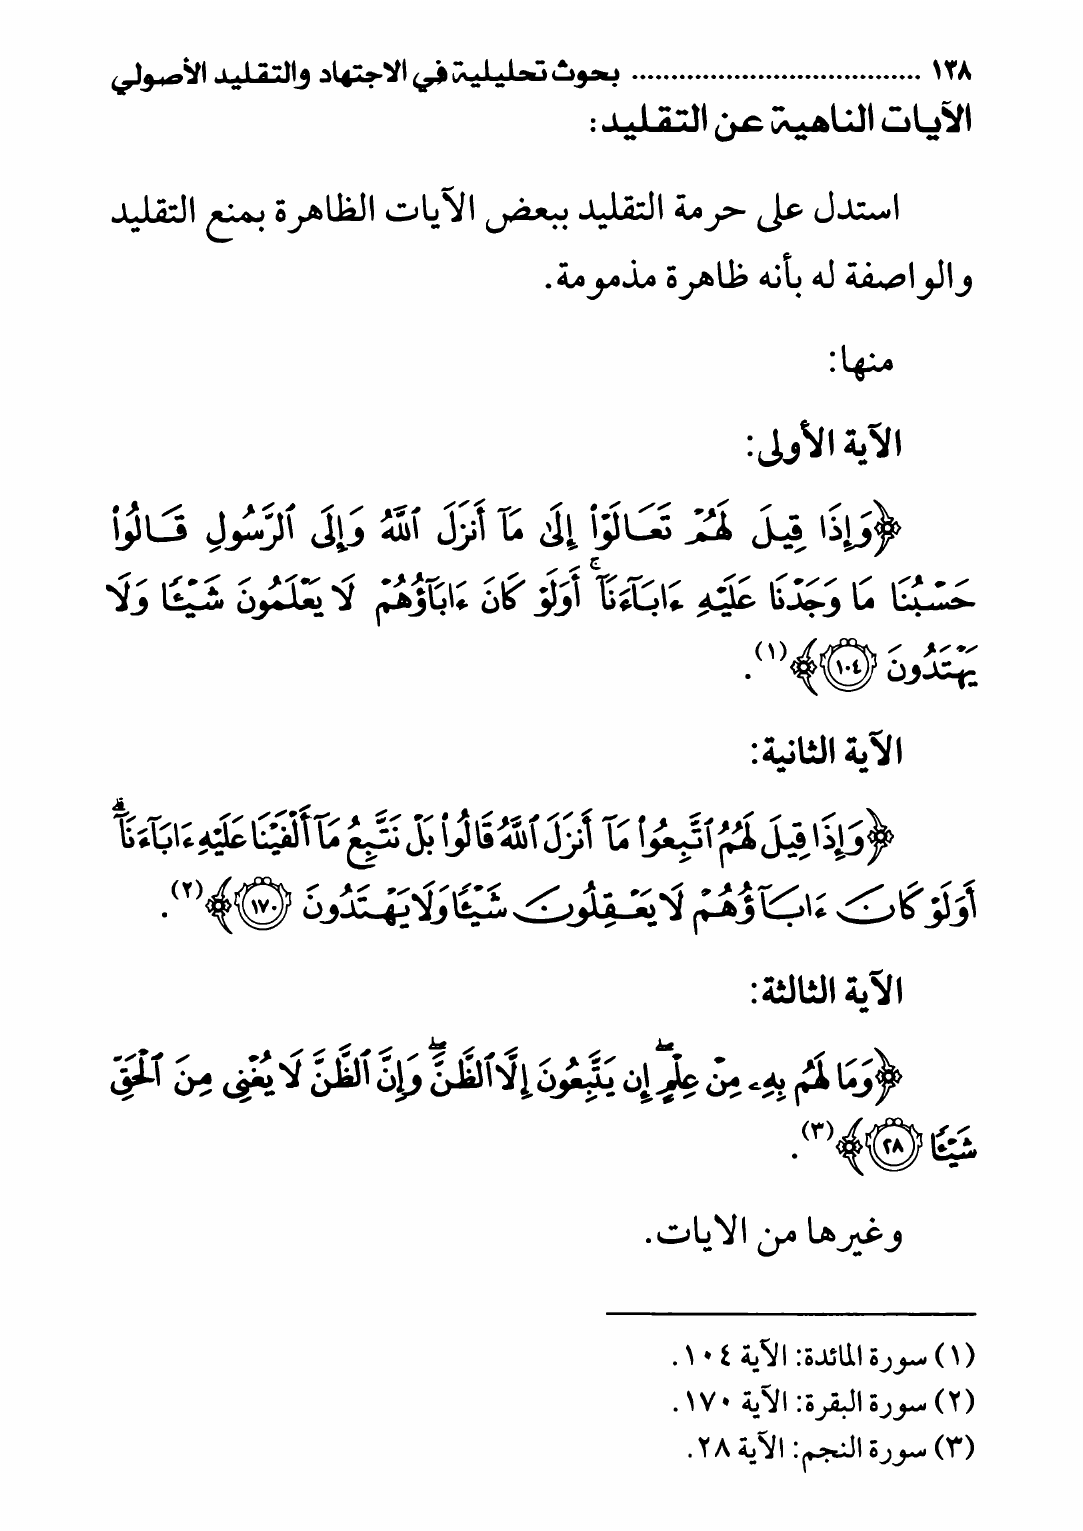 ١٣٨ .................................... بحوث تحليلية في الاجتهاد والتقليد الأصولي
الآيات الناهية عن التقليد:
استدل على حرمة التقليد ببعض الآيات الظاهرة بمنع التقليد
والواصفة له بأنه ظاهرة مذمومة.
منها:
الآية الأولى:
﴿وَإِذَا قِيلَ لَهُمۡ تَعَالَوۡاْ إِلَىٰ مَآ أَنزَلَ ٱللَّهُ وَإِلَى ٱلرَّسُولِ قَالُواْ
حَسۡبُنَا مَا وَجَدۡنَا عَلَيۡهِ ءَابَآءَنَآۚ أَوَلَوۡ كَانَ ءَابَآؤُهُمۡ لَا يَعۡلَمُونَ شَيۡـٔٗا وَلَا
يَهۡتَدُونَ ١٠٤﴾(١).
الآية الثانية:
﴿وَإِذَا قِيلَ لَهُمُ ٱتَّبِعُواْ مَآ أَنزَلَ ٱللَّهُ قَالُواْ بَلۡ نَتَّبِعُ مَآ أَلۡفَيۡنَا عَلَيۡهِ ءَابَآءَنَآۗ
أَوَلَوۡ كَانَ ءَابَآؤُهُمۡ لَا يَعۡقِلُونَ شَيۡـٔٗا وَلَا يَهۡتَدُونَ ١٧٠﴾(٢).
الآية الثالثة:
﴿وَمَا لَهُم بِهِۦ مِنۡ عِلۡمٍۖ إِن يَتَّبِعُونَ إِلَّا ٱلظَّنَّۖ وَإِنَّ ٱلظَّنَّ لَا يُغۡنِي مِنَ ٱلۡحَقِّ
شَيۡـٔٗا ٢٨﴾(٣).
وغيرها من الايات.
(١) سورة المائدة: الآية ١٠٤.
(٢) سورة البقرة: الآية ١٧٠.
(٣) سورة النجم: الآية ٢٨.